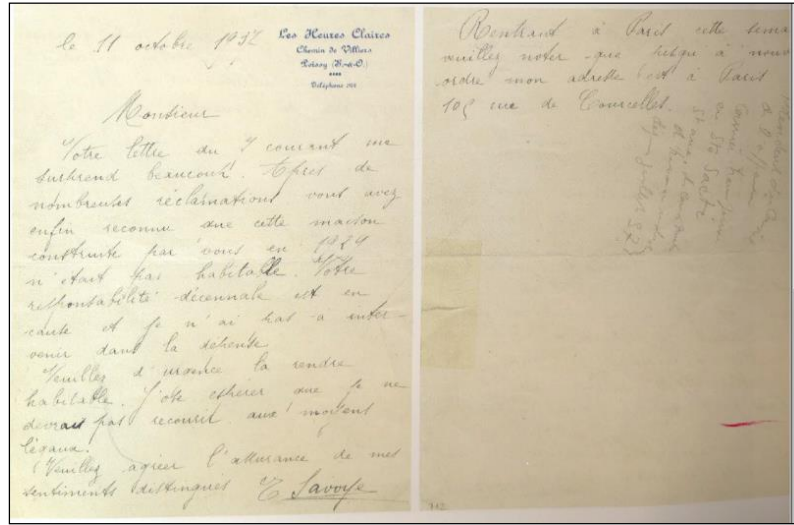 Les Heures Claires
Chemin de Villiers
Poissy (S.-&-O.)
Téléphone
le 11 octobre 1937
Monsieur
Votre lettre du 7 courant me
surprend beaucoup. Après de
nombreuses réclamations vous avez
enfin reconnu que cette maison
construite par vous en 1929
n'était pas habitable. Votre
responsabilité décennale est en
cause et je n'ai pas à inter-
venir dans la dépense.
Veuillez d'urgence la rendre
habitable. J'ose espérer que je ne
devrai pas recourir aux moyens
légaux.
Veuillez agréer l'assurance de mes
sentiments distingués E Savoye
Rentrant à Paris cette sema
veuillez noter que jusqu'à nouv
ordre mon adresse est à Paris
105 rue de Courcelles.
112